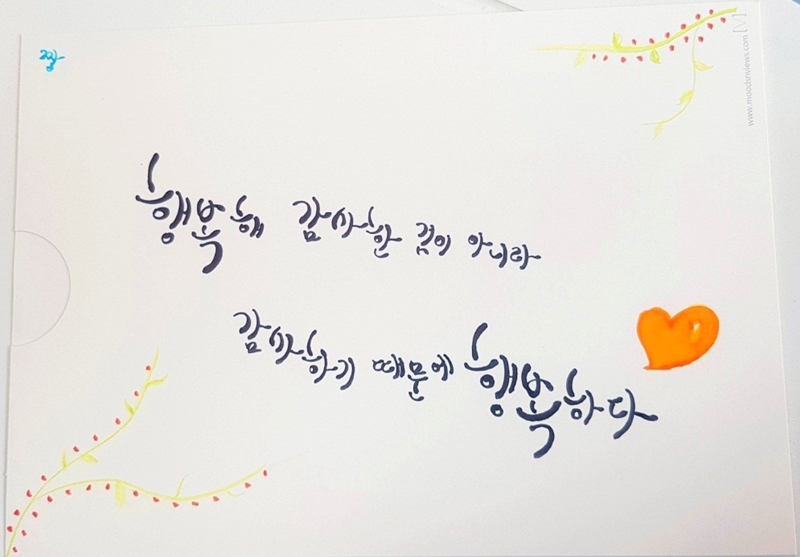 행복해 감사한 것이 아니라
감사하기 때문에 행복하다
www.moodsnviews.com [V]